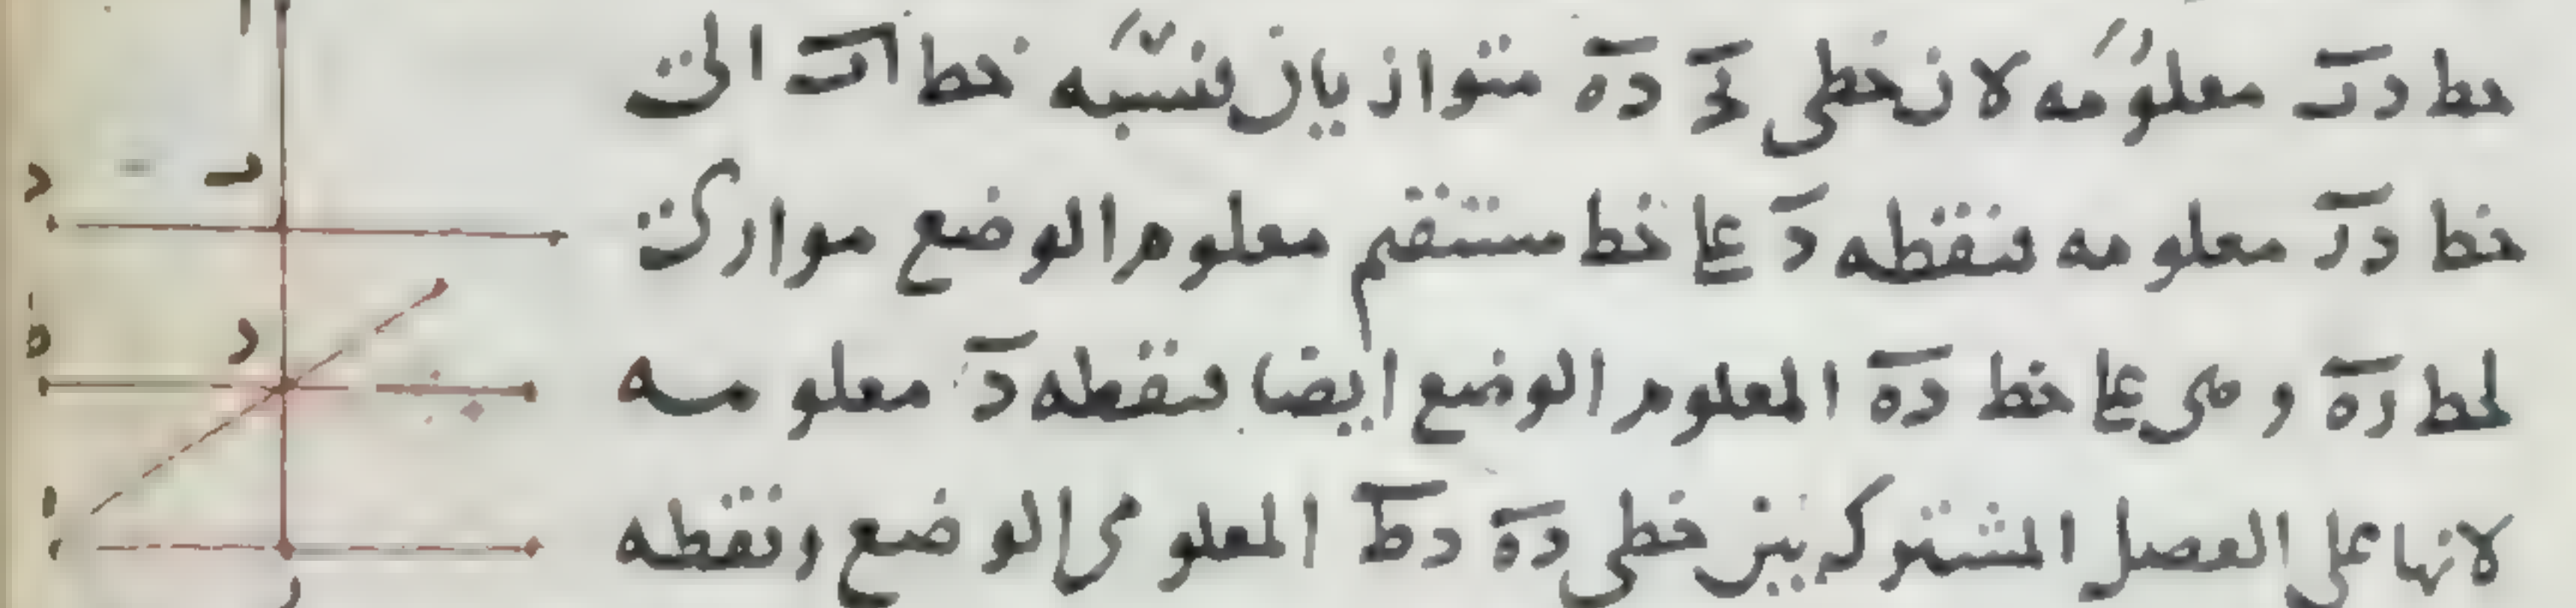 خط دب معلومه لان خطى بج ده متوازيان فنسبه خط اب الى
خط دب معلومه فنقطه د على خط مستقيم معلوم الوضع موازى
لخط ده وهى على خط ده المعلوم الوضع ايضا فنقطه د معلومه
لانها على الفصل المشترك بين خطى ده دط المعلومى الوضع ونقطه
ا
د
ب
ه
د
ا
ر